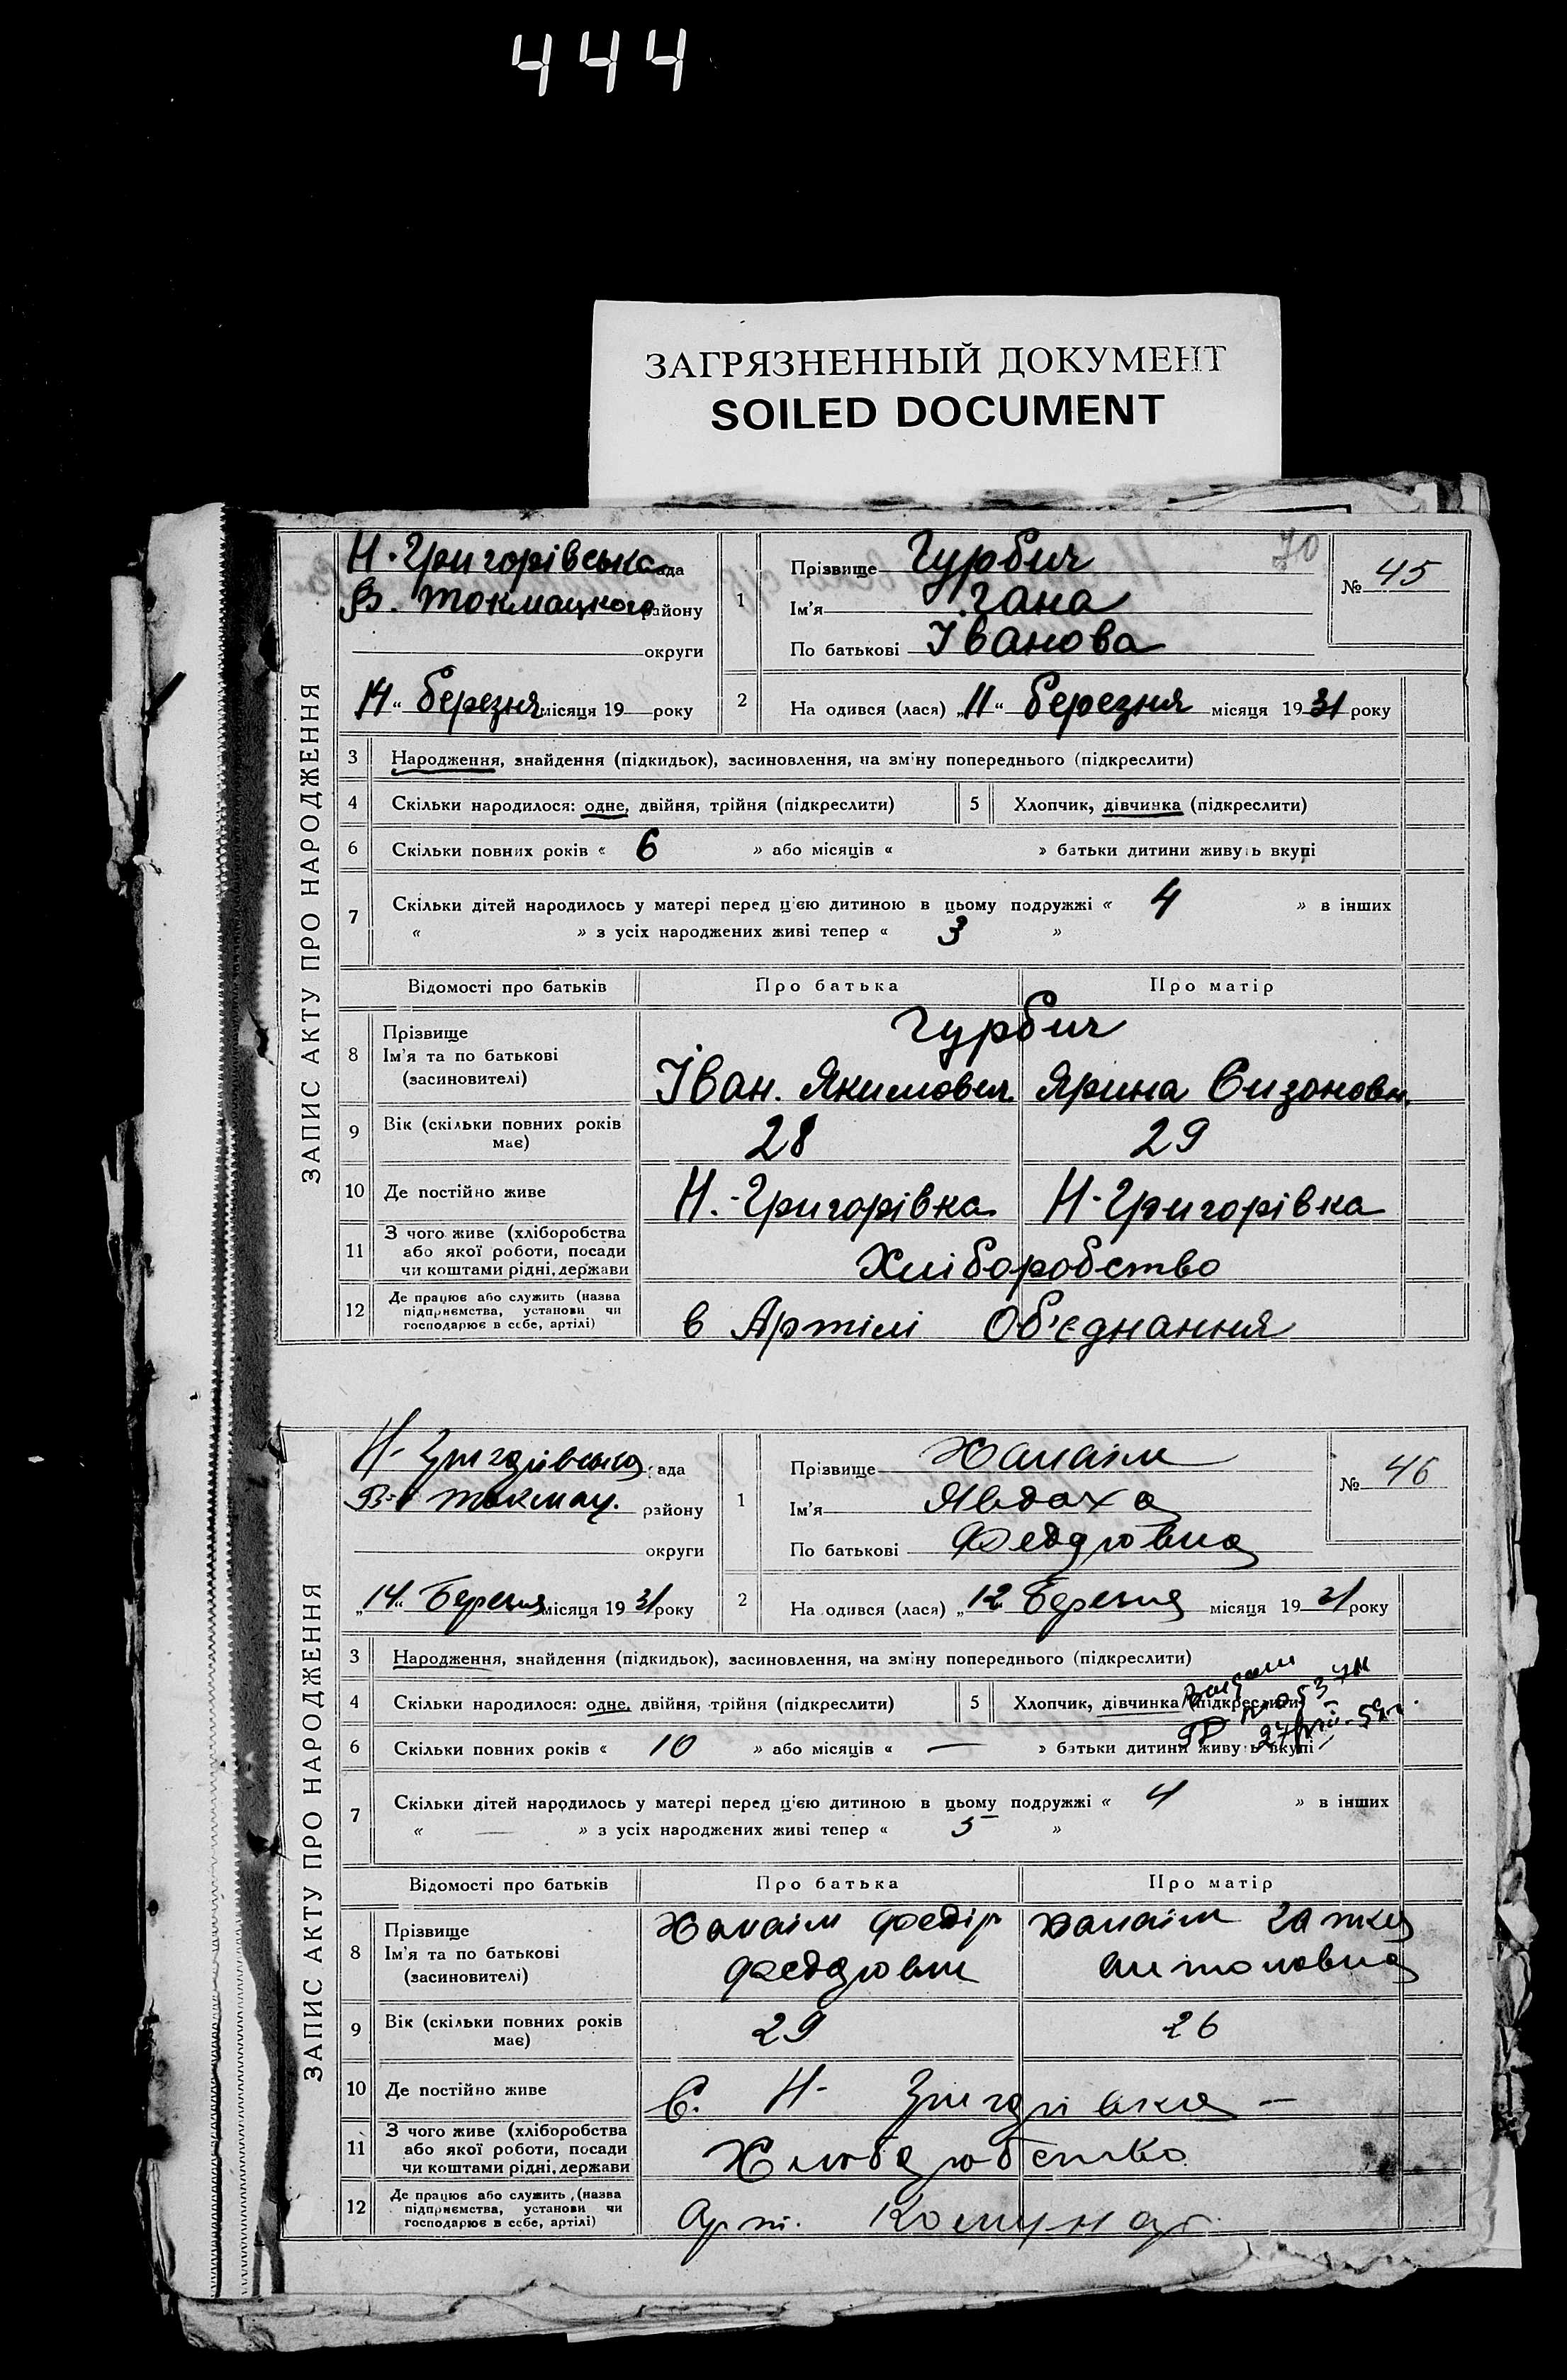 444
ЗАГРЯЗНЕННЫЙ ДОКУМЕНТ
SOILED DOCUMENT
ЗАПИС АКТУ ПРО НАРОДЖЕННЯ
Н. Григорівська рада
В. Токмацького району
округи
14 " березня місяця 19 року
1
Прізвище Гурбич
Ім'я Гана
По батькові Іванова
70
№ 45
2 На одився (лася) „11" березня місяця 1931 року
3 Народження, знайдення (підкидьок), засиновлення, на зміну попереднього (підкреслити)
4 Скільки народилося: одне, двійня, трійня (підкреслити) 5 Хлопчик, дівчинка (підкреслити)
6 Скільки повних років « 6 » або місяців « » батьки дитини живуть вкупі
7 Скільки дітей народилось у матері перед цією дитиною в цьому подружжі « 4 » в інших
« » з усіх народжених живі тепер « 3 »
Відомості про батьків Про батька Про матір
8 Прізвище Гурбич
Ім'я та по батькові
(засиновителі) Іван. Якимович. Ярина Сизоновн.
9 Вік (скільки повних років має) 28 29
10 Де постійно живе Н.-Григорівка Н-Григорівка
11 З чого живе (хліборобства
або якої роботи, посади
чи коштами рідні, держави Хліборобство
12 Де працює або служить (назва
підприємства, установи чи
господарює в себе, артілі) в Артілі Об'єднання
ЗАПИС АКТУ ПРО НАРОДЖЕННЯ
Н- Григорівська рада
В-Токмац. району
округи
„14" Березня місяця 1931 року
1
Прізвище Хамаім
Ім'я Явдоха
По батькові Федоровна
№ 46
2 На одився (лася) „12 Березня місяця 1931 року
3 Народження, знайдення (підкидьок), засиновлення, на зміну попереднього (підкреслити)
4 Скільки народилося: одне, двійня, трійня (підкреслити) 5 Хлопчик, дівчинка (підкреслити)
6 Скільки повних років « 10 » або місяців « — » батьки дитини живуть вкупі
7 Скільки дітей народилось у матері перед цією дитиною в цьому подружжі « 4 » в інших
« — » з усіх народжених живі тепер « 5 »
Відомості про батьків Про батька Про матір
8 Прізвище Хамаім Федір Хамаім
Ім'я та по батькові Федорович Антоновна
(засиновителі)
9 Вік (скільки повних років має) 29 26
10 Де постійно живе С. Н- Григорівка —
11 З чого живе (хліборобства
або якої роботи, посади
чи коштами рідні, держави Хлiборобство
12 Де працює або служить, (назва
підприємства, установи чи
господарює в себе, артілі) Арт. Комунар.